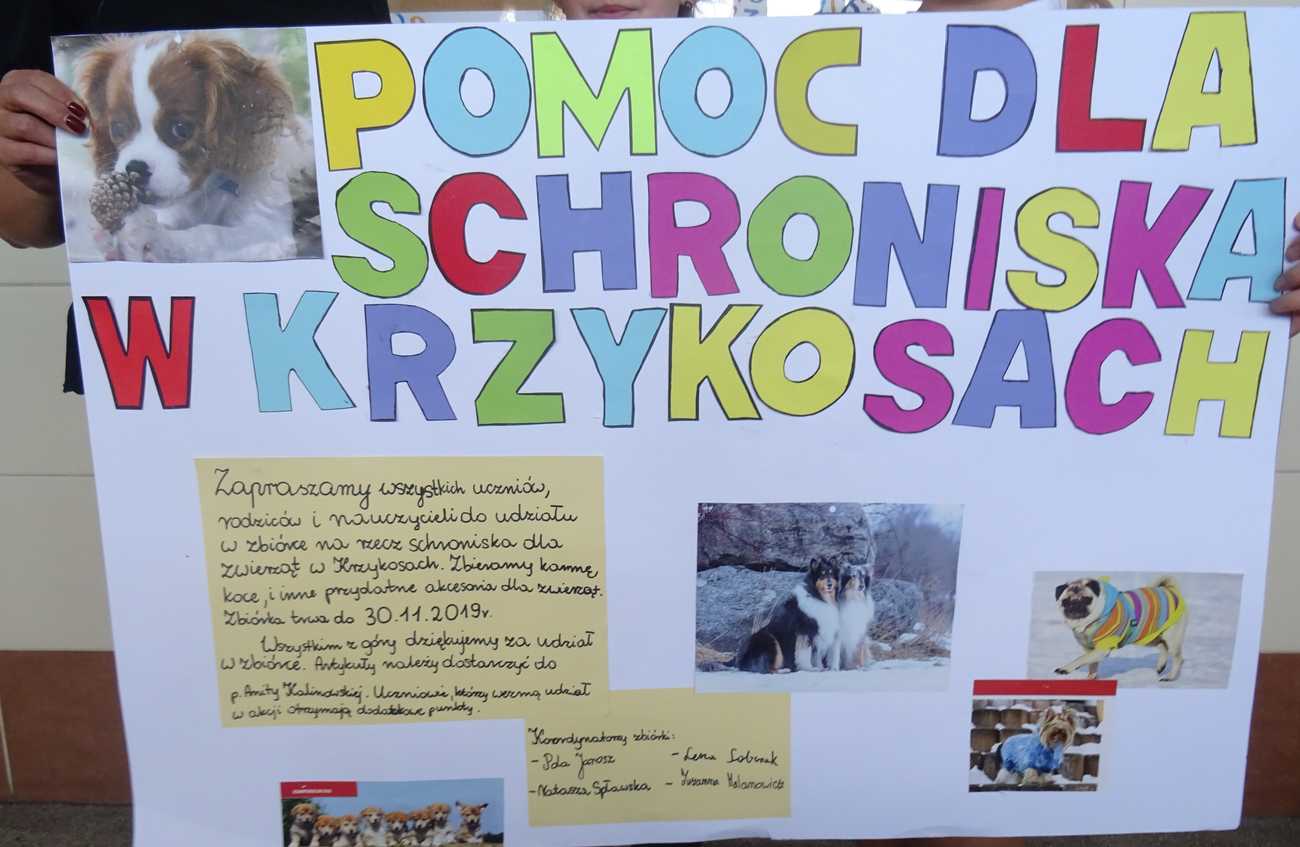 POMOC DLA
SCHRONISKA
W KRZYKOSACH
Zapraszamy wszystkich uczniów,
rodziców i nauczycieli do udziału
w zbiórce na rzecz schroniska dla
zwierząt w Krzykosach. Zbieramy karmę,
koce, i inne przydatne akcesoria dla zwierząt.
Zbiórka trwa do 30.11.2019r.
Wszystkim z góry dziękujemy za udział
w zbiórce. Artykuły należy dostarczyć do
p. Anity Kalinowskiej. Uczniowie, którzy wezmą udział
w akcji otrzymają dodatkowe punkty.
Koordynatorzy zbiórki:
- Pola Jarosz - Lena
- Natasza Spławska - Zuzanna